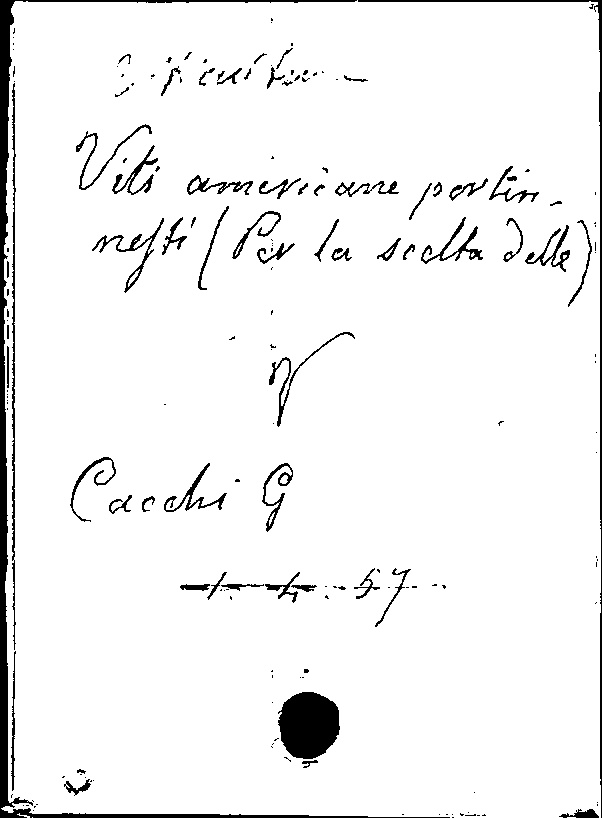 Viticultura
Viti americane portin-
nesti (Per la scelta delle)
v
Cacchi G
1. 4. 57